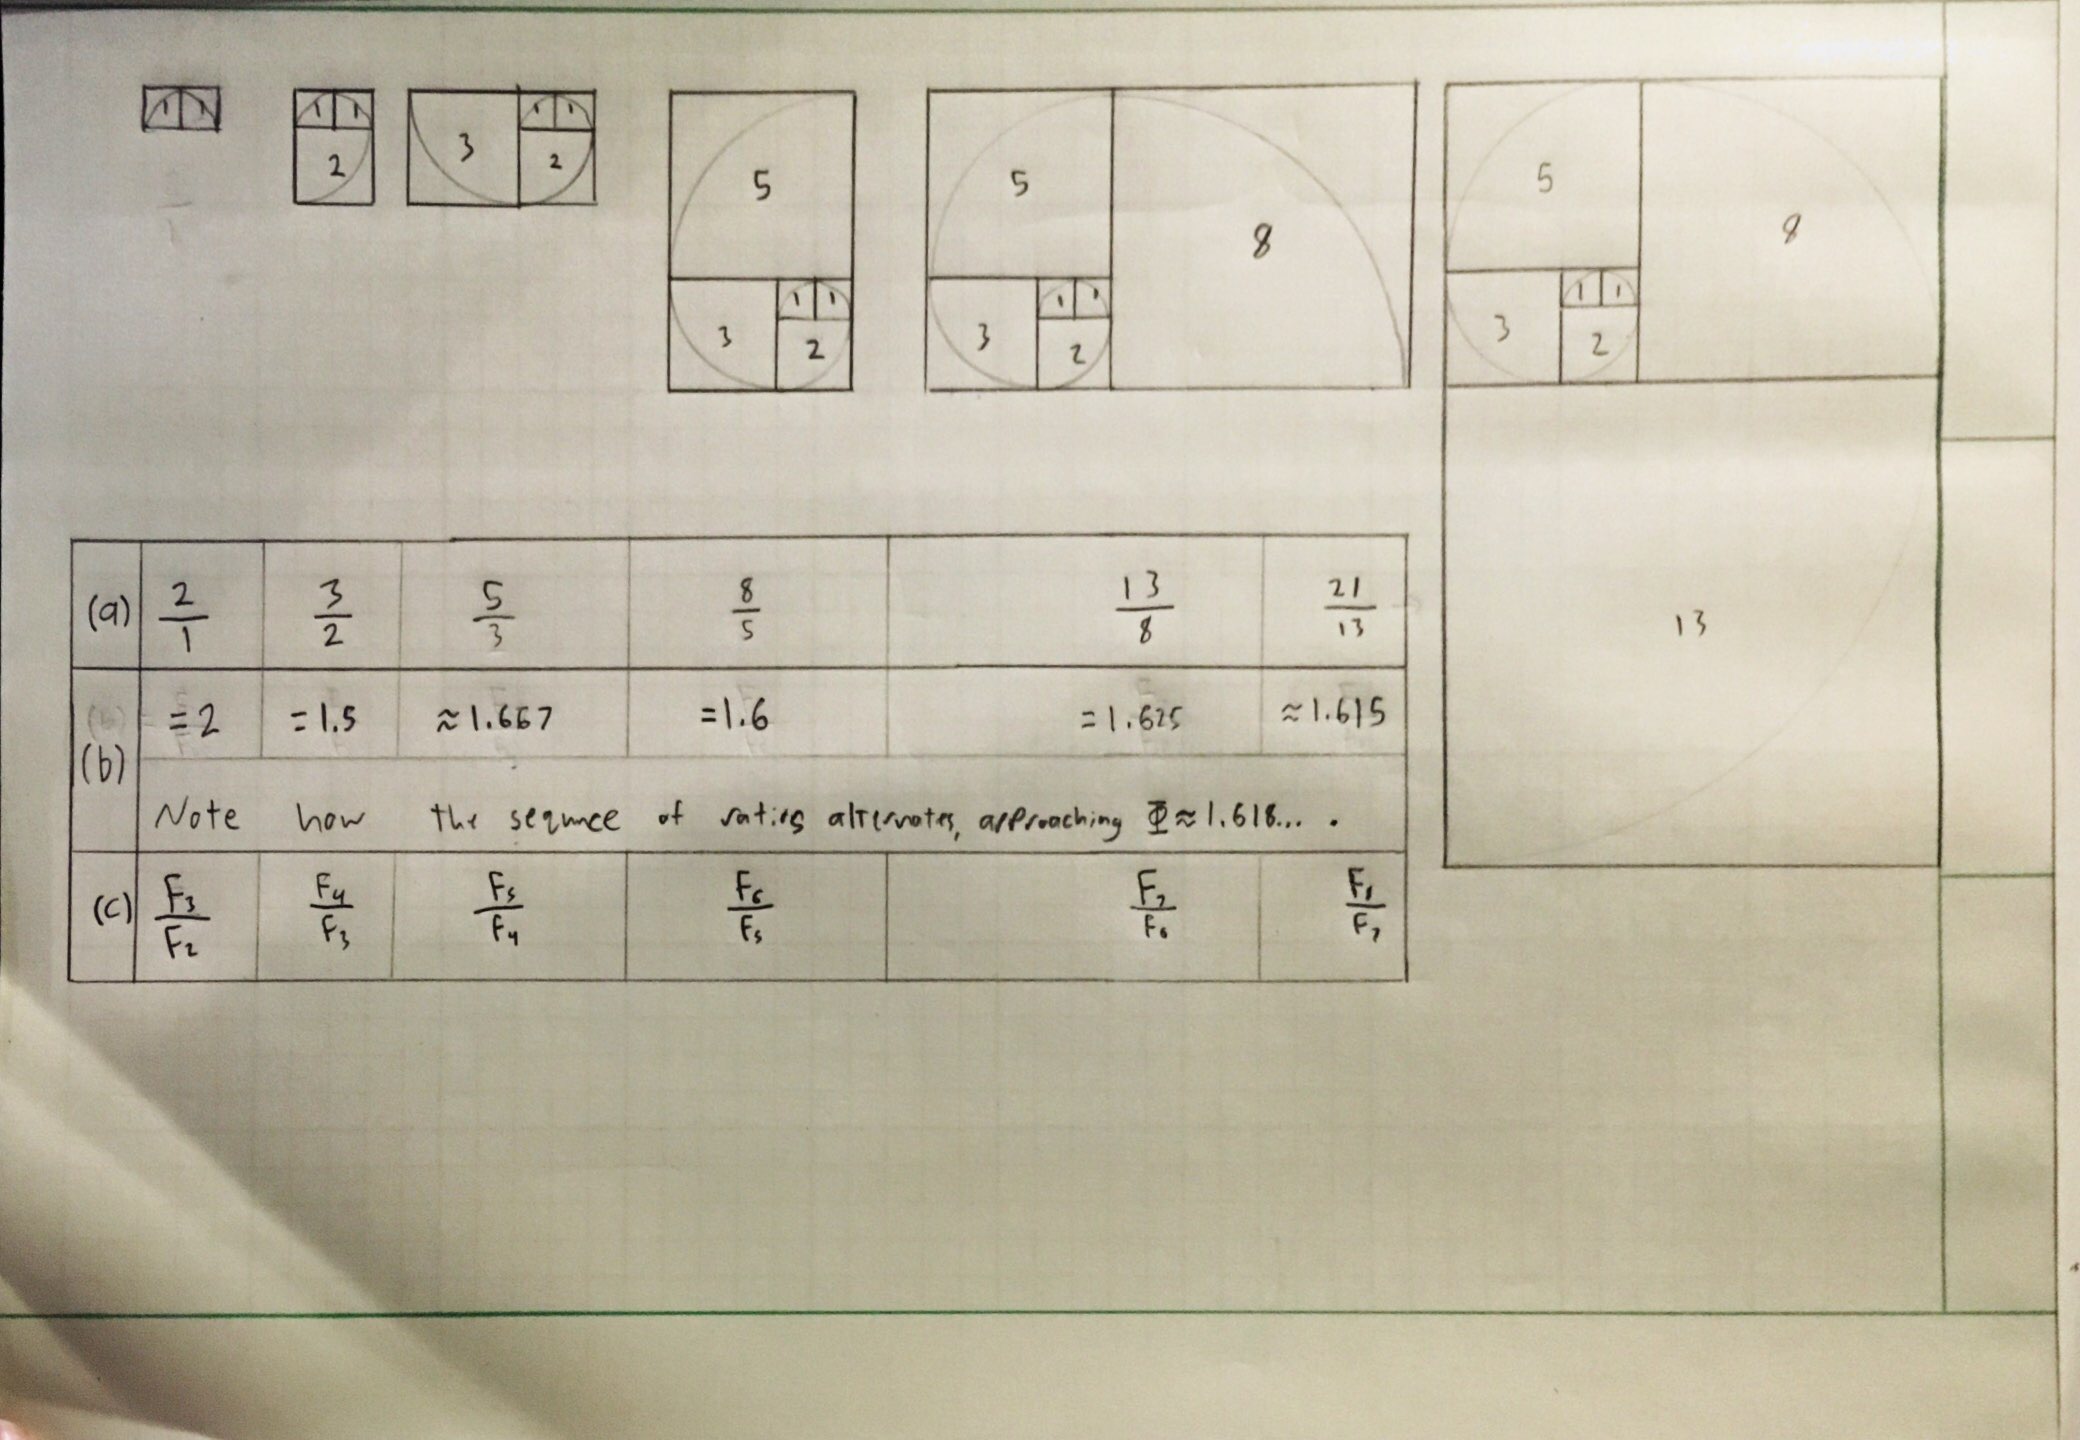 1 1
1 1
2
3
1 1
2
5
3
1 1
2
5
8
3
1 1
2
5
8
3
1 1
2
13
(a) 2/1 3/2 5/3 8/5 13/8 21/13
(b) =2 =1.5 ≈1.667 =1.6 =1.625 ≈1.615
Note how the sequnce of ratios alternates, approaching Φ≈1.618... .
(c) F3/F2 F4/F3 F5/F4 F6/F5 F7/F6 F8/F7